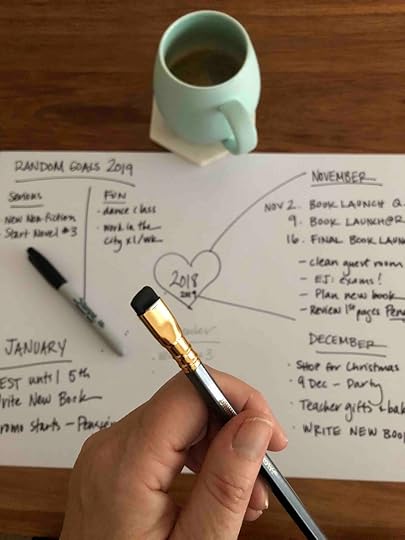 RANDOM GOALS 2019
SERIOUS
- New Non-fiction
- Start Novel #3
FUN
- dance class
- work in the
city x1/wk
2018
2019
NOVEMBER
NOV 2. BOOK LAUNCH @
9. BOOK LAUNCH@R
16. FINAL BOOK LAUN
- clean guest room
- EJ: exams!
- Plan new book
- Review 1st pages Pen
DECEMBER
Shop for Christmas
9 Dec - Party
Teacher gifts + bak
WRITE NEW BOO
JANUARY
EST until 5th
Write New Book
romo starts -